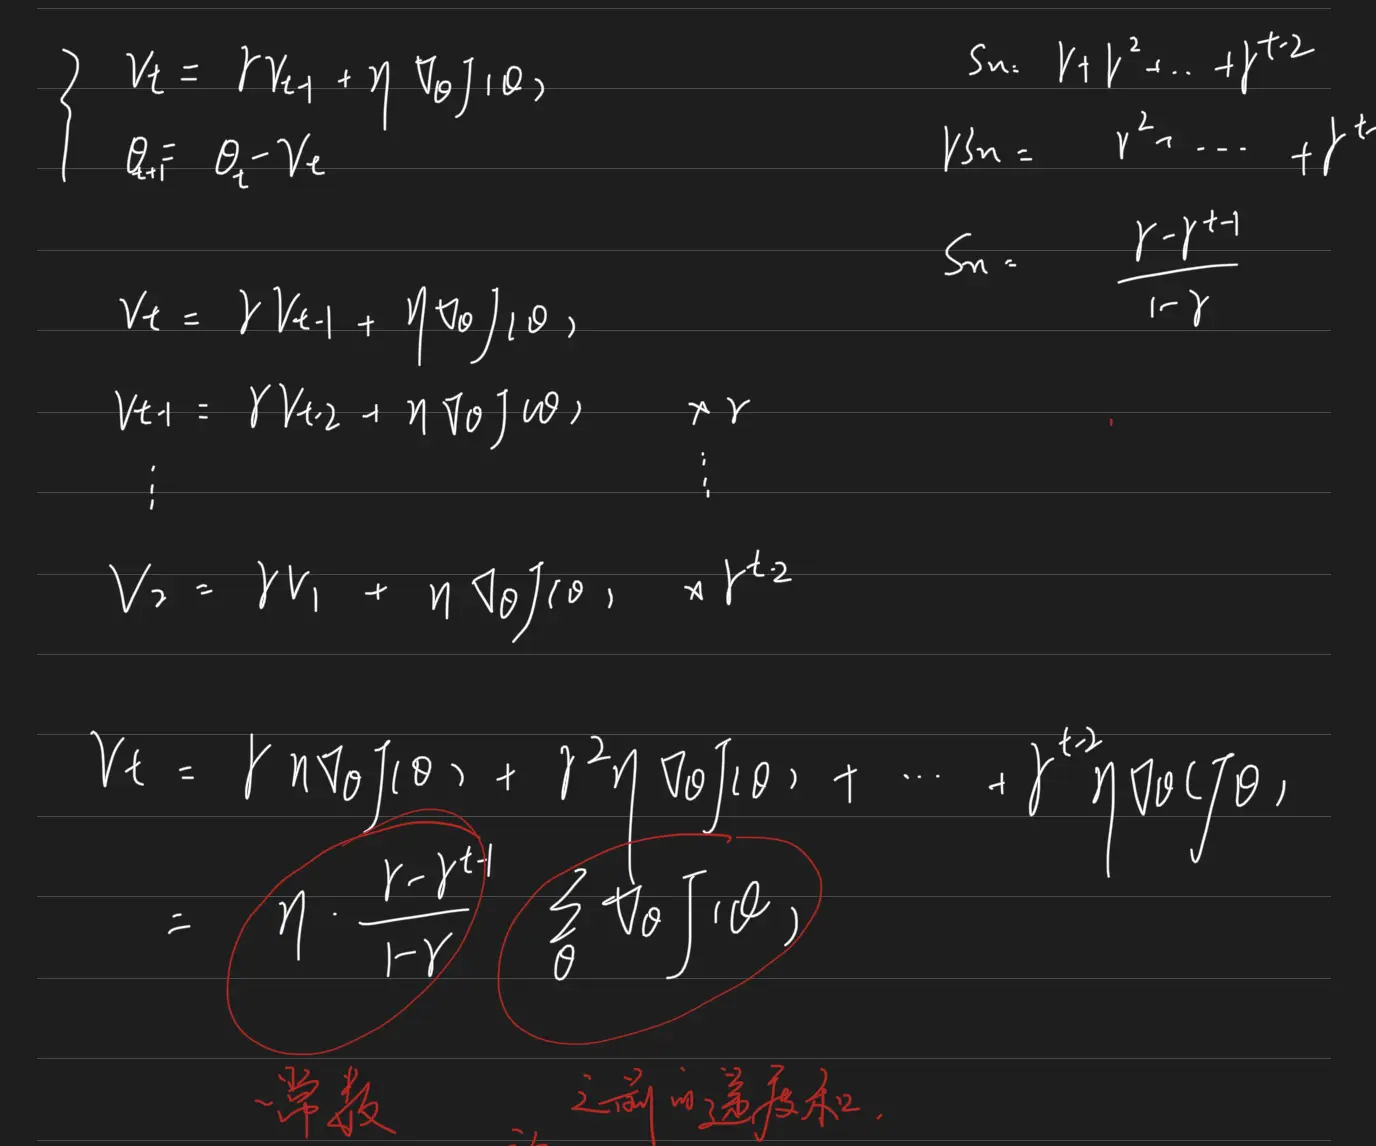 Vt = γVt-1 + η ∇θJ(θ)
θt+1 = θt - Vt
Sn = γ+γ²+...+γ^t-2
γSn = γ²+ ... +γ^t-
Sn = (γ-γ^t-1)/(1-γ)
Vt = γVt-1 + η∇θJ(θ)
Vt-1 = γVt-2 + η∇θJ(θ) × γ
⋮ ⋮
V2 = γV1 + η∇θJ(θ) × γ^t-2
Vt = γη∇θJ(θ) + γ²η∇θJ(θ) + ... + γ^t-2 η∇θ(Jθ)
= η · (γ-γ^t-1)/(1-γ) Σθ ∇θJ(θ)
常数 之前的梯度和.